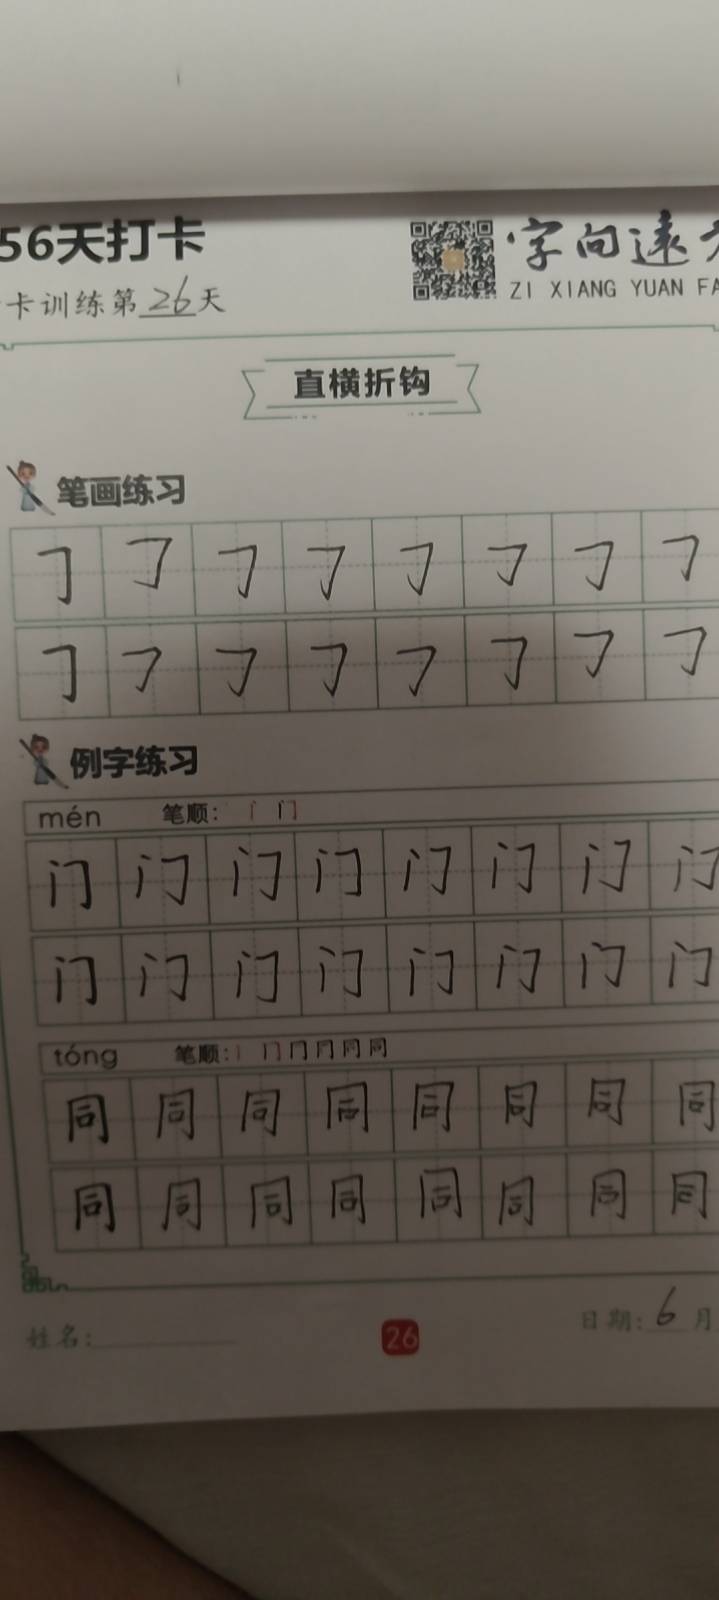 56天打卡
字向远
卡训练第26天
ZI XIANG YUAN FA
直横折钩
笔画练习
㇆ ㇆ ㇆ ㇆ ㇆ ㇆ ㇆ ㇆
㇆ ㇆ ㇆ ㇆ ㇆ ㇆ ㇆ ㇆
例字练习
mén 笔顺: 门
门 门 门 门 门 门 门 门
门 门 门 门 门 门 门 门
tóng 笔顺: 丨 冂 冂 同 同 同
同 同 同 同 同 同 同 同
同 同 同 同 同 同 同 同
姓名:
26
日期:6月